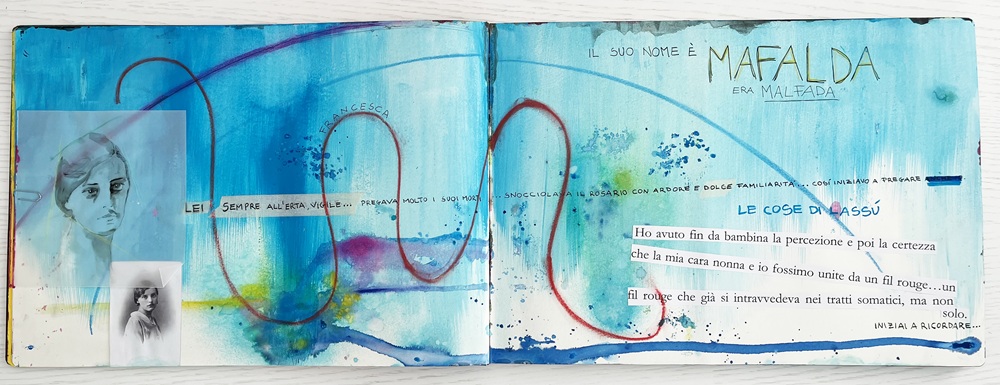 IL SUO NOME È MAFALDA
ERA MALFADA
FRANCESCA
LEI SEMPRE ALL'ERTA, VIGILE... PREGAVA MOLTO I SUOI MORTI, ... SNOCCIOLAVA IL ROSARIO CON ARDORE E DOLCE FAMILIARITÀ... COSÍ INIZIAVO A PREGARE
LE COSE DI LASSÚ
Ho avuto fin da bambina la percezione e poi la certezza
che la mia cara nonna e io fossimo unite da un fil rouge…un
fil rouge che già si intravvedeva nei tratti somatici, ma non
solo.
INIZIAI A RICORDARE...